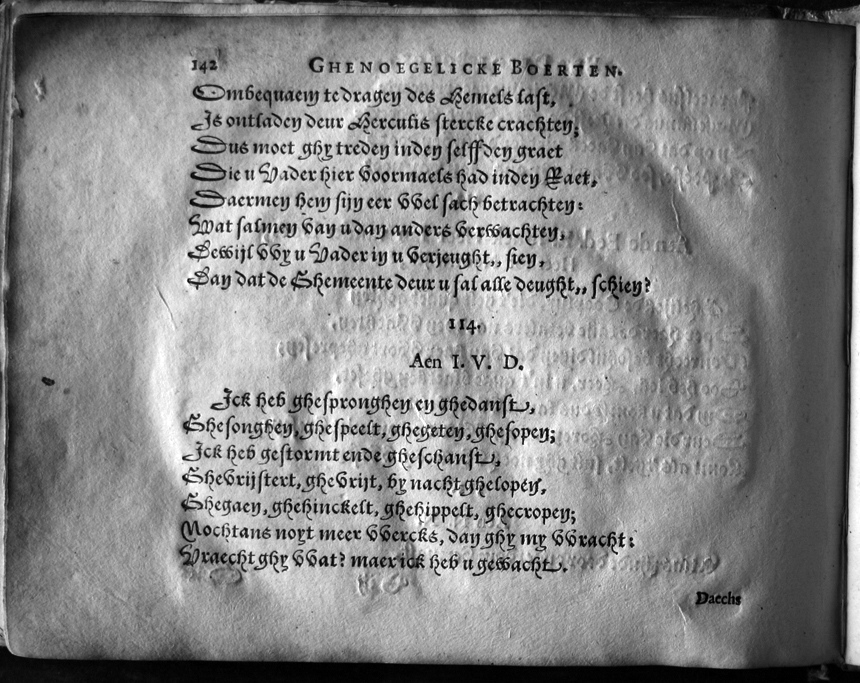 142 GHENOEGELICKE BOERTEN.
Ombequaem te dragen des Hemels last,
Is ontladen deur Herculis stercke crachten;
Dus moet ghy treden inden selffden graet
Die u Vader hier voormaels had inden Raet,
Daermen hem sijn eer wel sach betrachten:
Wat salmen van u dan anders verwachten,
Dewijl wy u Vader in u verjeught,, sien,
Dan dat de Ghemeente deur u sal alle deught,, schien?
114.
Aen I. V. D.
Ick heb ghespronghen en ghedanst,
Ghesonghen, ghespeelt, ghegeten, ghesopen;
Ick heb gestormt ende gheschanst,
Ghevrijstert, ghevrijt, by nacht ghelopen,
Ghegaen, ghehinckelt, ghehippelt, ghecropen;
Nochtans noyt meer wercks, dan ghy my wracht:
Vraecht ghy wat? maer ick heb u gewacht.
Daechs